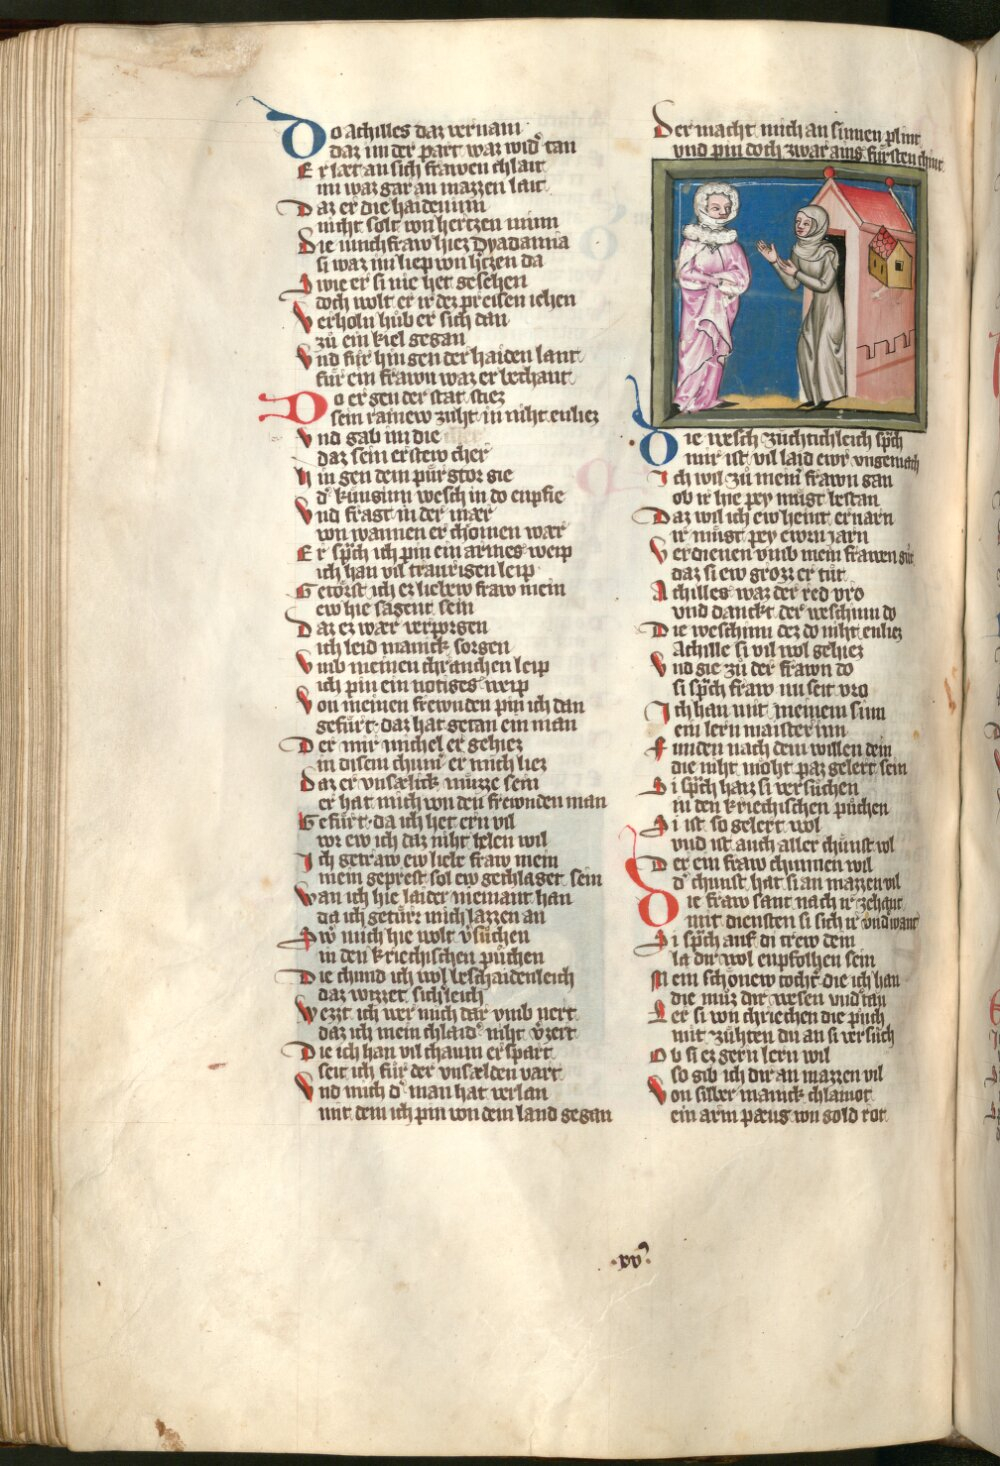 Do achilles daz vernam
daz im der part waz wid͛ tan
Er laet an sich frawen chlait
im waz gar an mazzen lait
Daz er die haideninn
nicht solt von hertzen minn
Die iunchfraw hiez Dyadamia
si waz im liep von h͛tzen da
Swie er si nie het gesehen
doch wolt er ir dez preisen iehen
Verholn hůb er sich dan
zů ein kiel gegan
Vnd fůr hin gen der haiden lant
für ein frawn waz er bechant
Do er gen der stat stiez
sein rainew zuht in niht enliez
Vnd gab im die
daz sein erstew cher
Hin gen dem pürgtor gie
d͛ künginn wesch in do enpfie
Vnd fragt in der maer
von wannen er chomen waer
Er sp̄ch ich pin ein armes weip
ich han vil traurigen leip
Getörst ich ez liebew fraw mein
ew hie sagent sein
Daz ez waer verporgen
ich leid manick sorgen
Vmb meinen chranchen leip
ich pin ein nötiges weip
Von meinen frewnden pin ich dan
gefürt daz hat getan ein man
Der mir michel er gehiez
in disem chum͛ er mich liez
Daz er vnsaelick müzze sein
er hat mich von den frewnden man
Gefürt da ich het ern vil
vor ew ich daz niht helen wil
Ich getraw ew liebe fraw mein
mein geprest sol ew gechlaget sein
Wan ich hie laider niemant han
da ich getürr mich lazzen an
Sw͛ mich hie wolt v͛süchen
in den kriechischen püchen
Die chund ich wol beschaidenleich
daz wizzet sichleich
Wezzt ich wer mich dar vmb nert
daz ich mein chlaid͛ niht v͛zert
Die ich han vil chaum erspart
seit ich für der vnsaelden vart
Vnd mich d͛ man hat verlan
mit dem ich pin von dem land gegan
Der macht mich an sinnen plint
vnd pin doch zwar ains fürsten chint
Die wesch züchtichleich sp̄ch
mir ist vil laid ewr vngemach
Ich wil zů mein͛ frawn gan
ob ir hie pey mügt bestan
Daz wil ich ew heint ernarn
ir mügt pey ewrn iarn
Verdienen vmb mein frawen gůt
daz si ew grozz er tůt
Achilles waz der red vro
vnd danckt der weschinn do
Die weschinn dez do niht enliez
Achille si vil wol gehiez
Vnd gie zů der frawn do
si sp̄ch fraw nu seit vro
Ich han mit meinem sinn
ein lern maisterinn
Funden nach dem willen dein
die niht möht paz gelert sein
Si sp̄ch haiz si versüchen
in den kriechischen püchen
Si ist so gelert wol
vnd ist auch aller chunst vol
Der ein fraw chunnen wil
d͛ chunst hat si an mazzen vil
Die fraw sant nach ir zehant
mit diensten si sich ir vnd͛want
Si sp̄ch auf di trew dein
la dir wol enpfolhen sein
Mein schönew tocht͛ die ich han
die můz dir wesen vnd͛tan
Ler si von chriechen die půch
mit zühten du an si versůch
Ob si ez gern lern wil
so gib ich dir an mazzen vil
Von silber manick chlainot
ein arm paeug von gold rot
·xv͛·